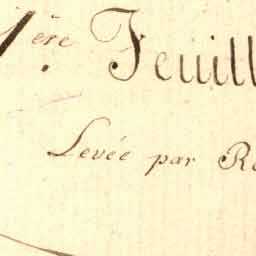 1.ère Feuill
Levée par Re